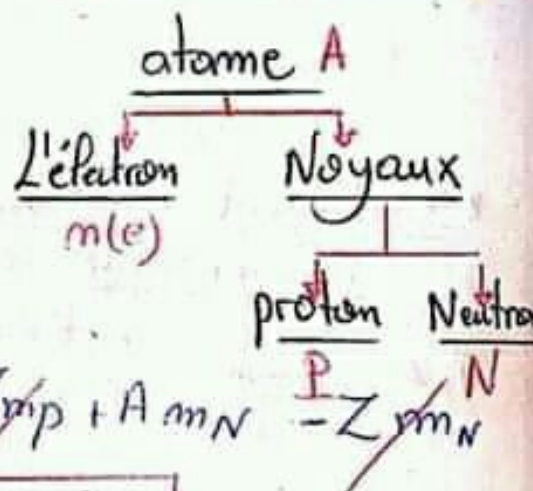 atome A
L'élatron Noyaux
m(e)
proton Neutro
P N
mp + A mN - Z mN